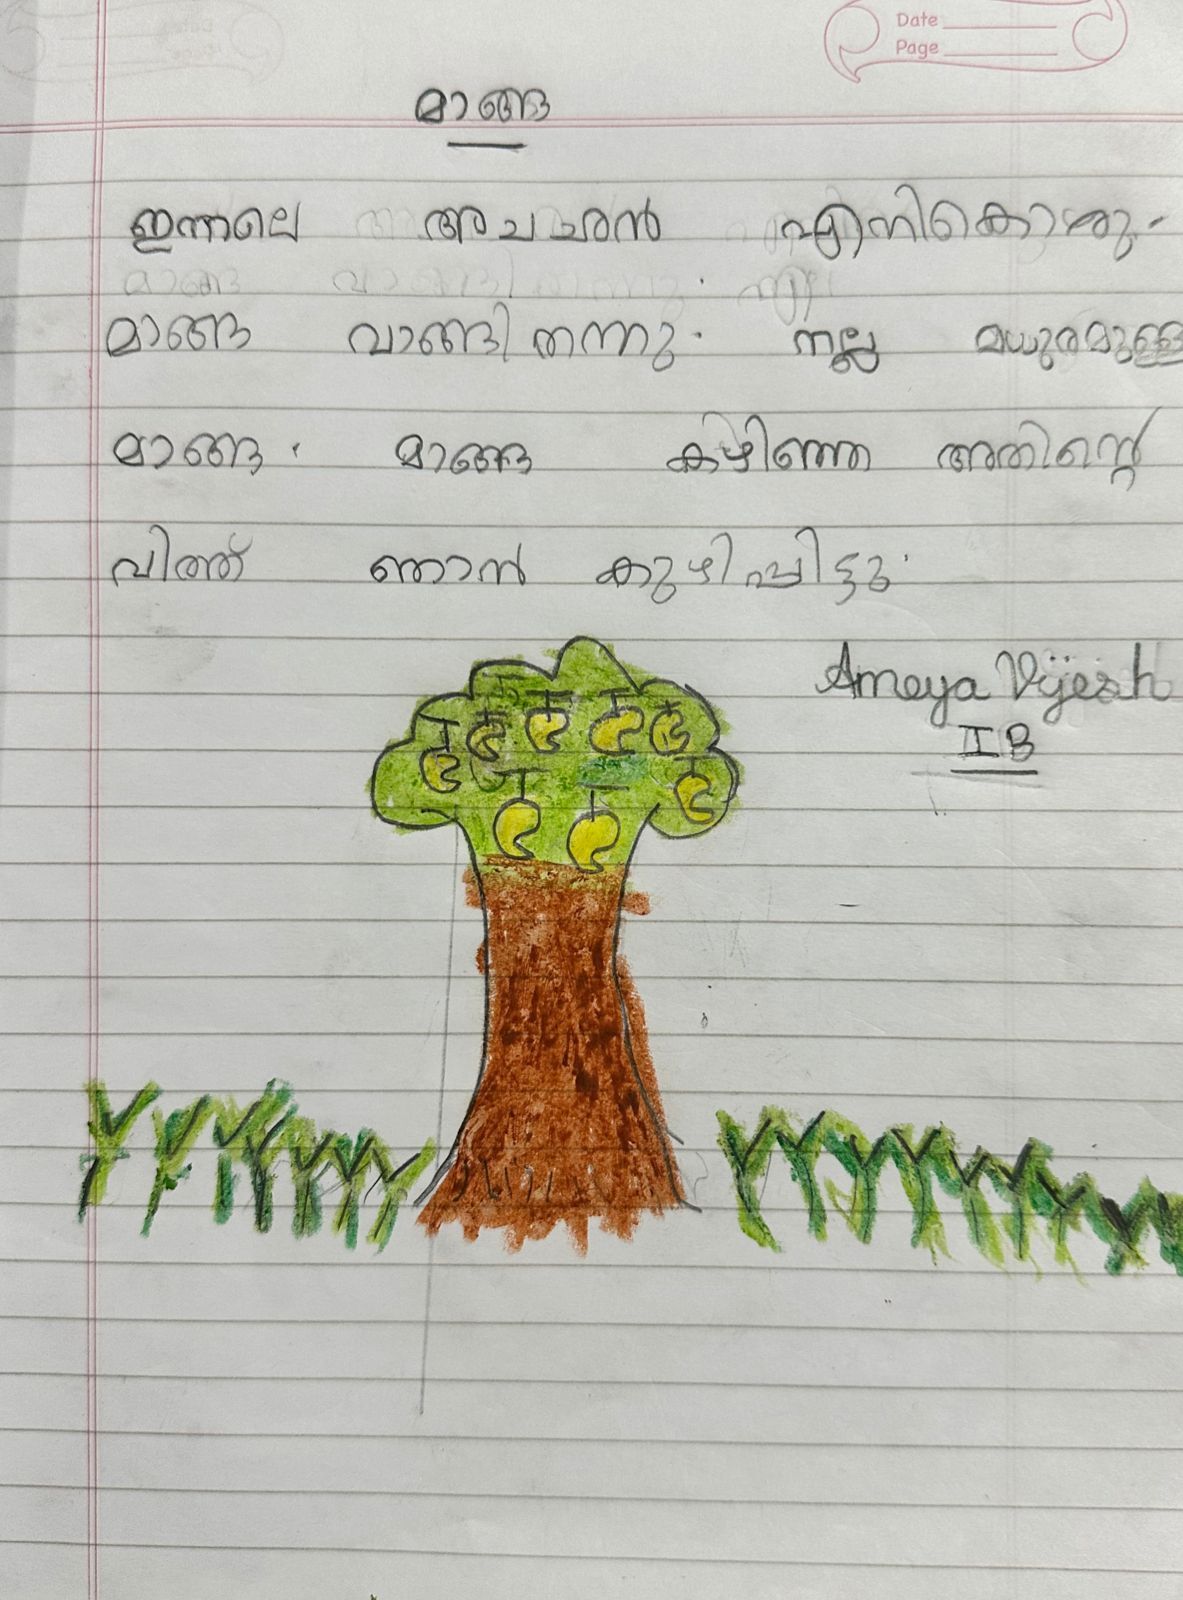 Date
Page
മാങ്ങ
ഇന്നലെ അചഛൻ
മാങ്ങ വാങ്ങി തന്നു. നല്ല മധുരമുള്ള
മാങ്ങ. മാങ്ങ കഴിഞ്ഞ അതിന്റെ
വിത്ത് ഞാൻ കുഴിപ്പിട്ടു.
Ameya Vijesh
II B